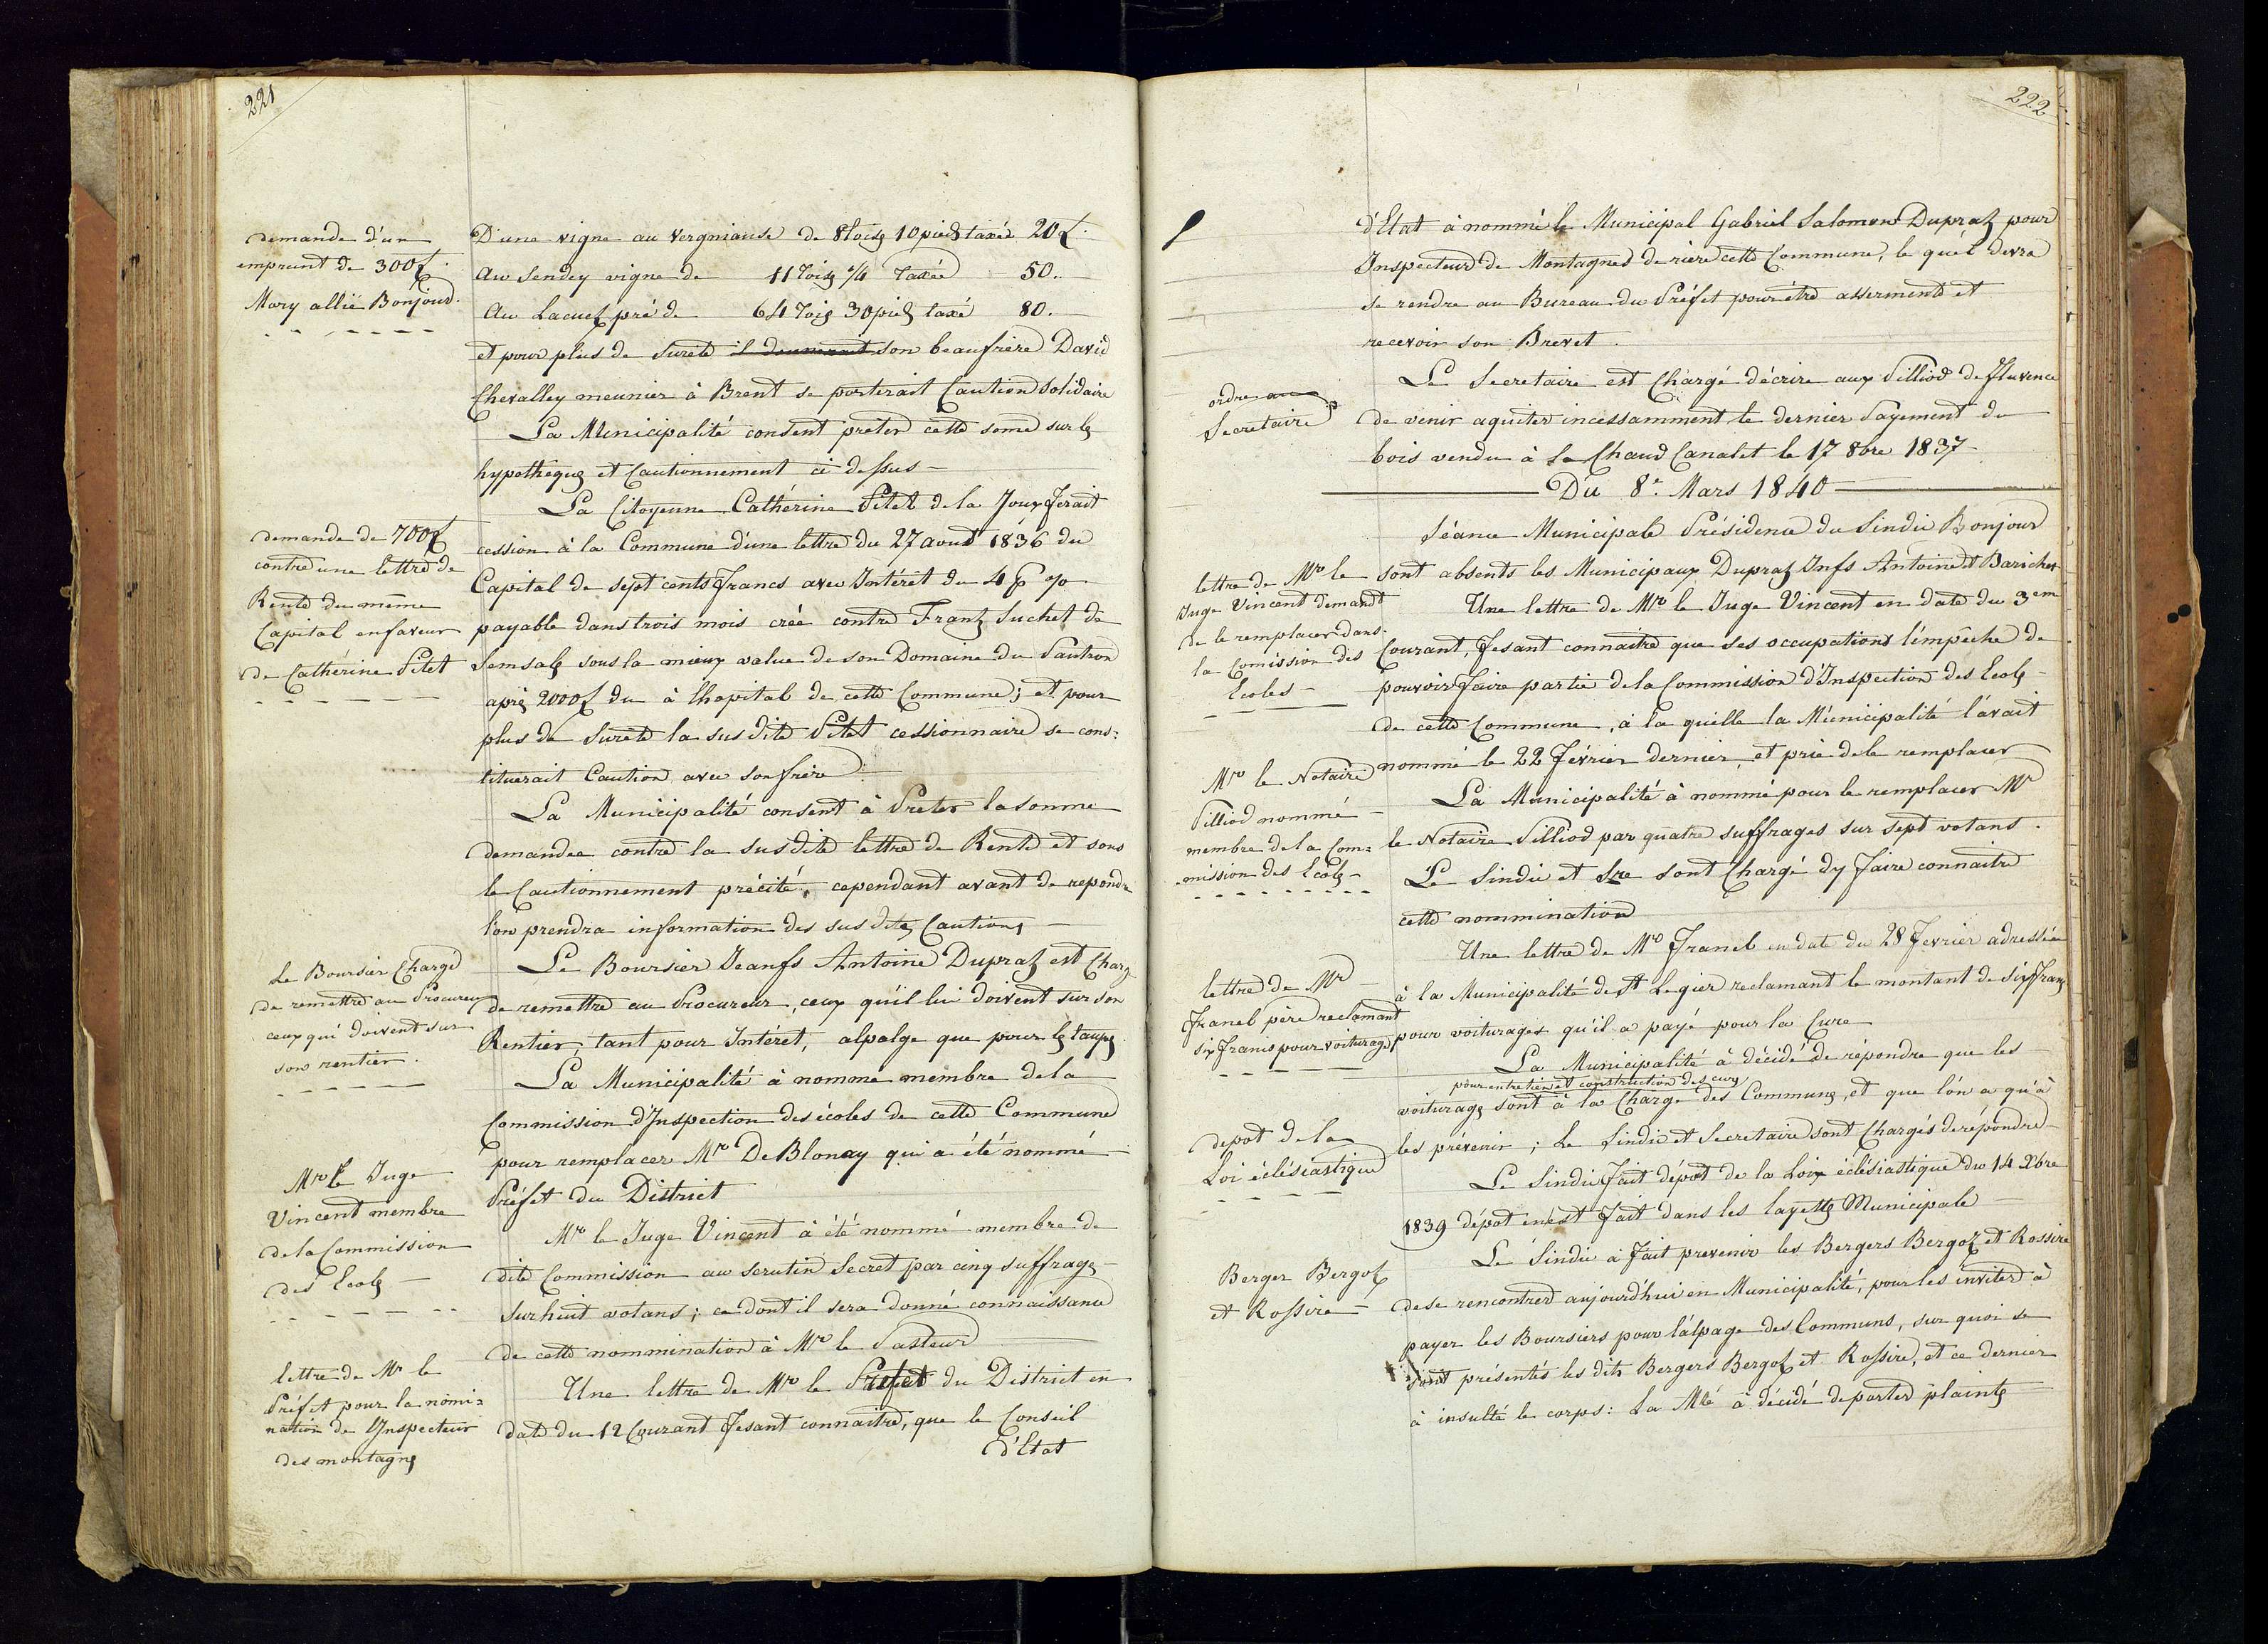 221
demande d'un
emprunt de 300f.
Mary allié Bonjour.
D'une vigne au Vergniause de 8 toises 10 pieds taxée 20f.
Au Sendey vigne de 11 Toises 3/4 Taxée 50.
Au Lacuez pré de 64 Toises 30 pieds taxé 80.
et pour plus de sureté il donnerait son beaufrère David
Chevalley meunier à Brent se porterait Caution solidaire
La Municipalité consent preter cette some sur les
hypothèques et Cautionnement ci dessus
demande de 700f
contre une lettre de
Rente du même
Capital en faveur
de Cathérine Pilet
La Citoyenne Cathérine Pilet de la Joux ferait
cession à la Commune d'une lettre du 27 aout 1836 du
Capital de sept cents francs avec Intérêt du 4 p %
payable dans trois mois créé contre Frantz Suchet de
Semsales sous la mieux value de son Domaine du Pautron
après 2000f du à lhopital de cette Commune; et pour
plus de sureté la sus dite Pilet cessionnaire se cons:
tituerait Caution avec son frère
La Municipalité consent à Preter la somme
demandée contre la susdite lettre de Rente et sous
le Cautionnement précité, cependant avant de repondre
l'on prendra information des sus dites Cautions
Le Boursier Chargé
de remettre au Procureur
ceux qui doivent sur
son rentier.
Le Boursier Jeanfs Antoine Dupraz est Chargé
de remettre au Procureur, ceux qu'il lui doivent sur son
Rentier, tant pour Intéret, alpalge que pour les taupes
La Municipalité à nommé membre de la
Commission d'Inspection des écoles de cette Commune
pour remplacer Mr De Blonay qui a été nommé
Préfet du District
Mr le Juge
Vincent membre
de la Commission
des Ecoles
Mr le Juge Vincent à été nommé membre de
dite Commission au scrutin secret par cinq suffrages
sur huit votans; ce dont il sera donné connaissance
de cette nommination à Mr le Pasteur
lettre de Mr le
Préfet pour la nomi:
nation de l'Inspecteur
des montagnes
Une lettre de Mr le Préfet du District en
date du 12 Courant fesant connaitre, que le Conseil
d'Etat
222
d'Etat à nommé le Municipal Gabriel Salomon Dupraz pour
Inspecteur de Montagnes derière cette Commune, le quel devra
se rendre au Bureau du Préfet pour être assermenté et
recevoir son Brevet.
ordre au
Secretaire
Le Secretaire est Chargé décrire aux Pilliod de fluvence
de venir aquiter incessamment le dernier Payement du
bois vendu à la Chaud Canalet le 17 8bre 1837
Du 8e Mars 1840
Séance Municipale Présidence du Sindic Bonjour
sont absents les Municipaux Dupraz Jnfs Antoine et Barichet
lettre de Mr le
Juge Vincent demande
de le remplacer dans
la Comission des
Ecoles
Une lettre de Mr le Juge Vincent en date du 3em
Courant, fesant connaitre que ses occupations l'empêche de
pouvoir faire partie de la Commission d'Inspection des Ecoles
de cette Commune, à la quelle la Municipalité l'avait
nommé le 22 Février dernier, et prie de le remplacer
Mr le Notaire
Pilliod nommé
membre de la Com:
mission des Ecoles
La Municipalité à nommé pour le remplacer Mr
le Notaire Pilliod par quatre suffrages sur sept votans.
Le Sindic et Sre sont Chargé dy faire connaitre
cette nommination
lettre de Mr
Franel père reclamant
six francs pour voiturages
Une lettre de Mr Franel en date du 28 Fevrier adressée
à la Municipalité de St Legier reclamant le montant de six francs
pour voiturages qu'il a payé pour la Cure
La Municipalité à décidé de répondre que les
pour entretien et construction des cures
voiturages sont à la Charge des Communes, et que l'on a qu'à
les prévenir; Le Sindic et Secretaire sont Chargés de répondre
depot de la
Loi éclésiastique
Le Sindic fait dépot de la Loix éclésiastique du 14 Xbre
1839 dépot en est fait dans les layettes Municipale
Berger Bergoz
et Rossire
Le Sindic a fait prevenir les Bergers Bergoz et Rossire
de se rencontrer aujourd'hui en Municipalité, pour les inviter à
payer les Boursiers pour l'alpage des Communs, sur quoi se
sont présentés les dits Bergers Bergoz et Rossire, et ce dernier
à insulté le corps: La Mté à décidé de porter plainte